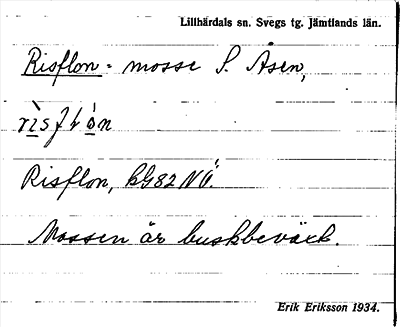 Lillhärdals sn. Svegs tg. Jämtlands län.
Risflon = mosse S. Åsen,
Risflon, kG82 NÖ.
Mossen är buskbeväxt.
Erik Eriksson 1934.